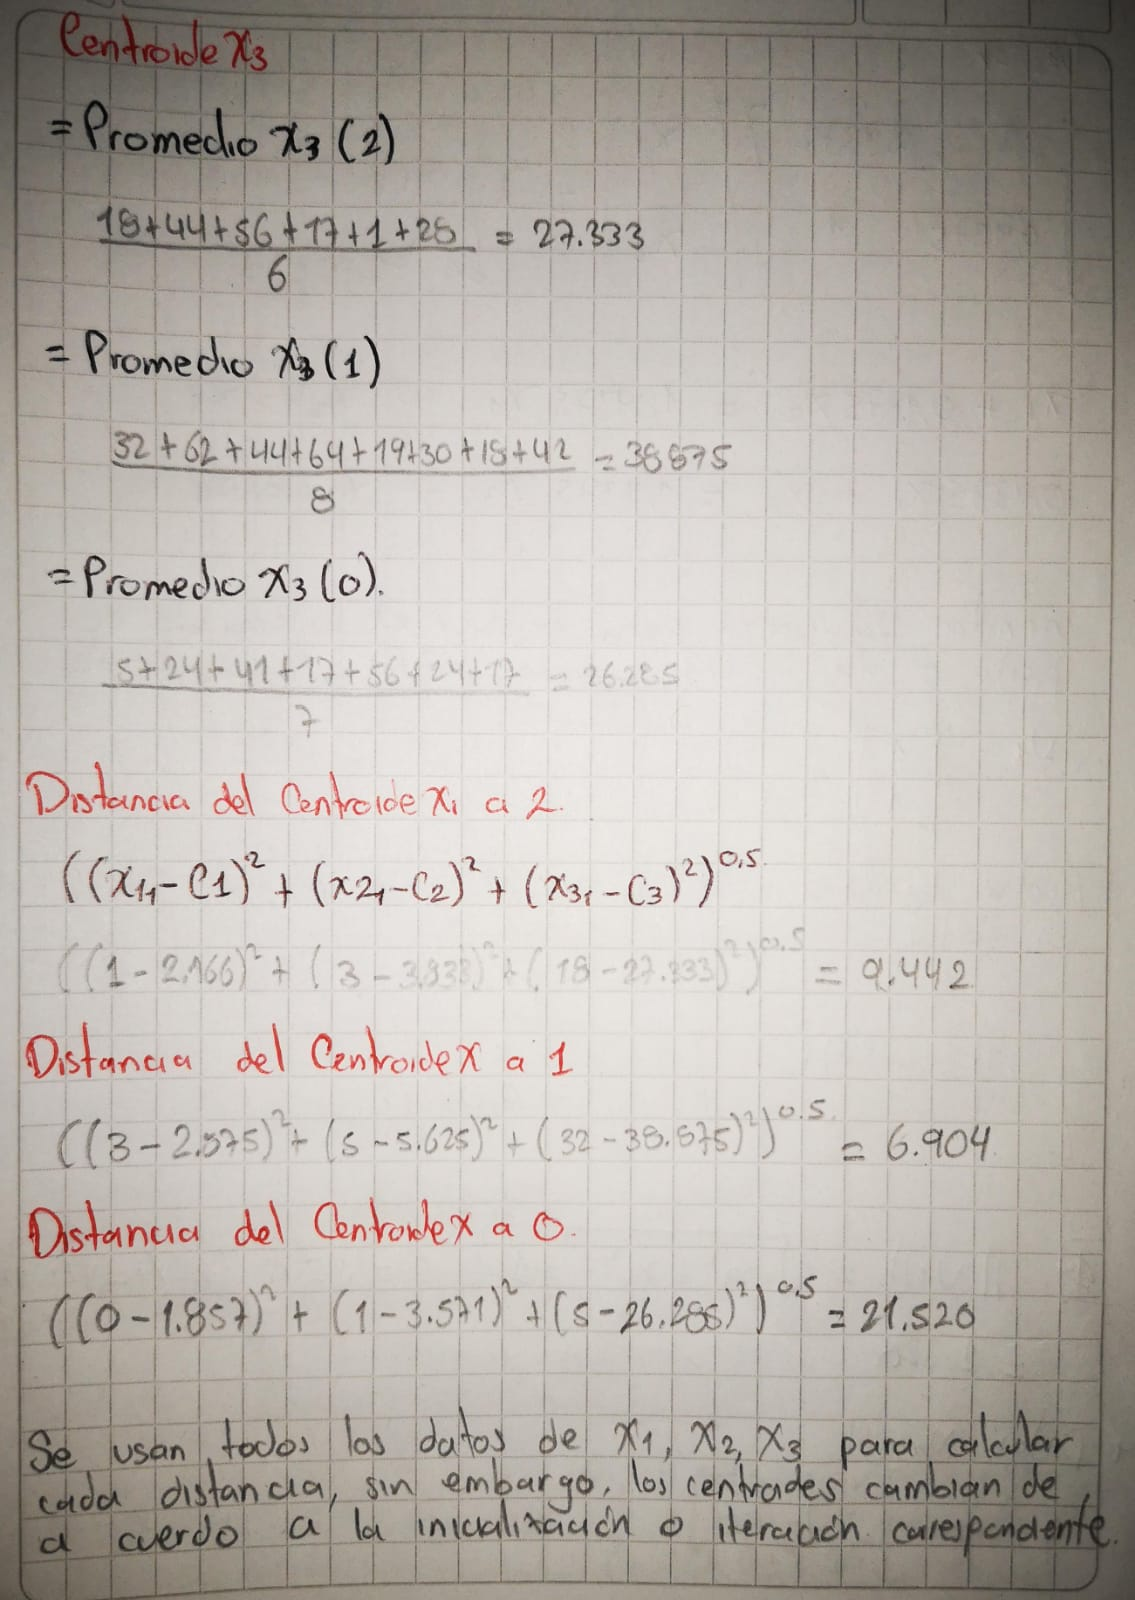 Centroide X3
= Promedio x3 (2)
18+44+56+17+1+28 = 27.333
6
= Promedio x3 (1)
32+62+44+64+19+30+18+42 = 38875
8
= Promedio x3 (0).
5+24+41+17+56+24+17 = 26.285
7
Distancia del Centroide X1 a 2.
((x11-C1)² + (x21-C2)² + (x31-C3)²)^0,5
((1-2.166)² + (3-3.833)² + (18-27.333)²)^0.5 = 9.442
Distancia del Centroide X a 1
((3-2.875)² + (5-5.625)² + (32-38.875)²)^0.5 = 6.904
Distancia del Centroide x a 0.
((0-1.857)² + (1-3.571)² + (5-26.285)²)^0.5 = 21.520
Se usan todos los datos de X1, X2, X3 para calcular
cada distancia, sin embargo, los centrades cambian de
a cuerdo a la inicialización o iteración correspondente.